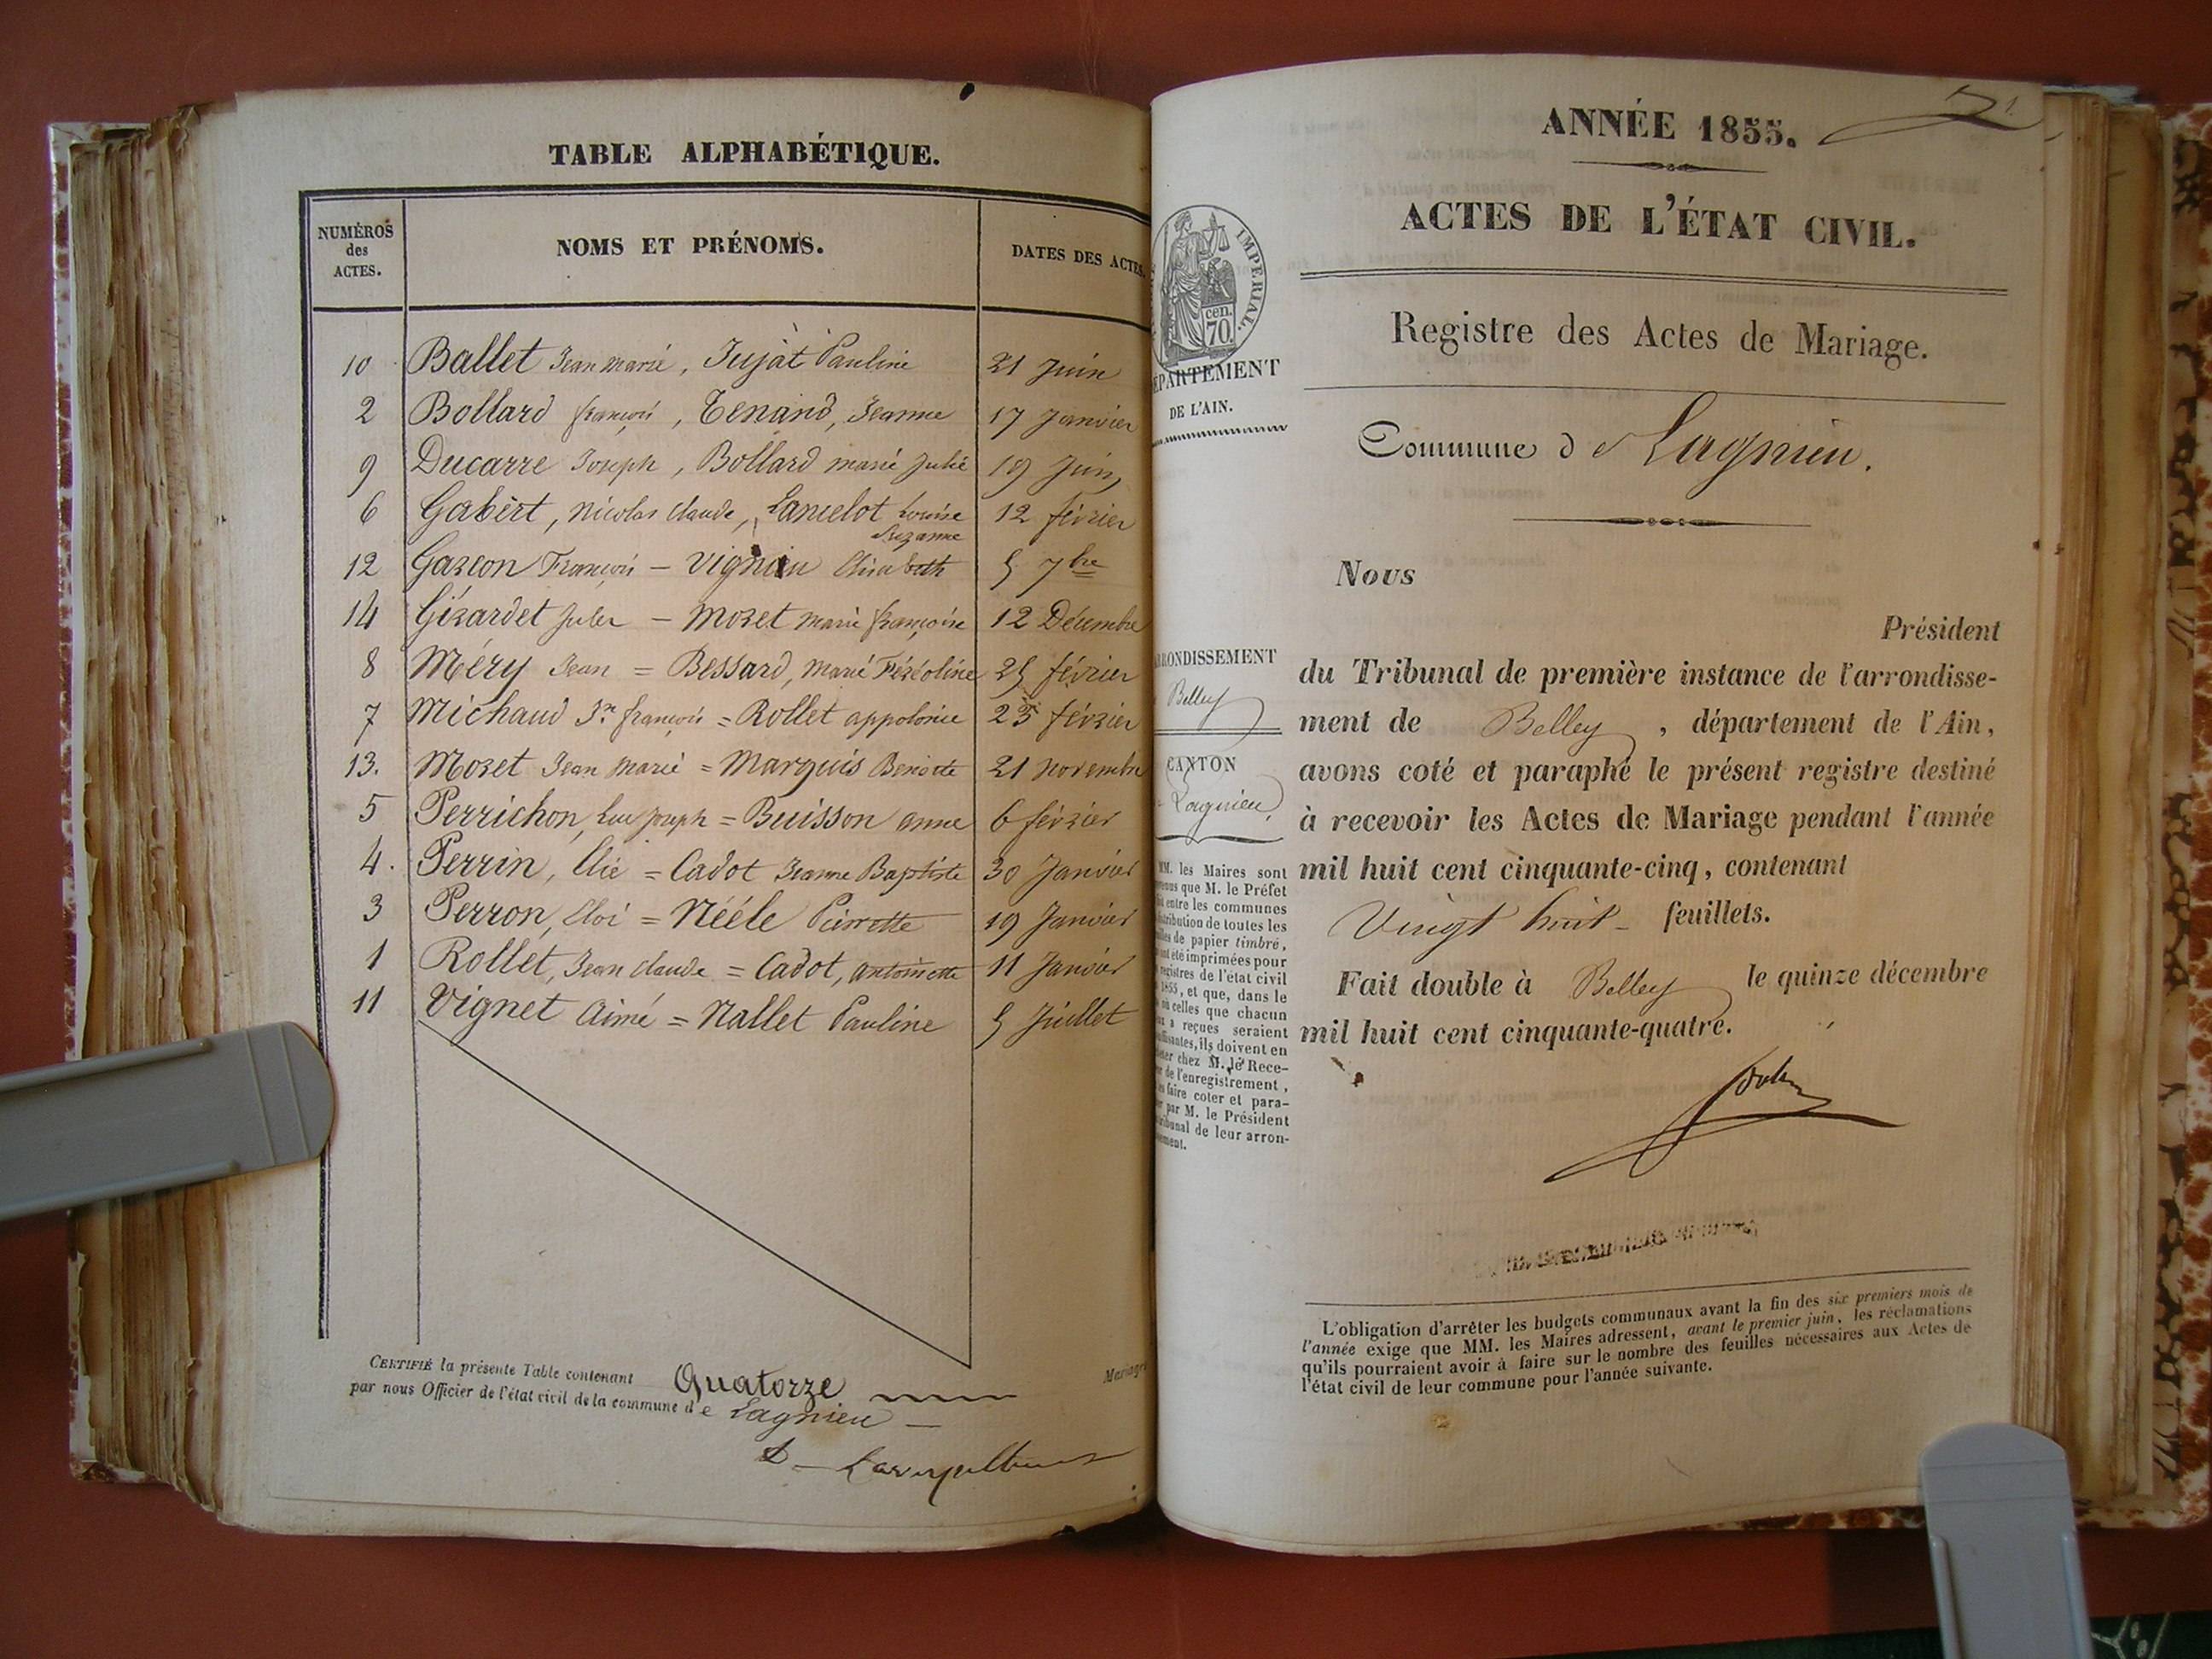 TABLE ALPHABÉTIQUE.
NUMÉROS des ACTES. NOMS ET PRÉNOMS. DATES DES ACTES.
10 Ballet Jean marie, Jujat Pauline 21 Juin
2 Bollard françois, Tenand, Jeanne 17 Janvier
9 Ducarre Joseph, Bollard marie Julie 19 Juin
6 Gabert, Nicolas Claude, Lancelot Louise Suzanne 12 février
12 Garcon François - Vignieu Elisabeth 5 7bre
14 Girardet Jules - Moret marie françoise 12 Décembre
8 Méry Jean = Bessard, Marie Féréoline 25 février
7 Michaud Jn françois = Rollet appolonie 23 février
13. Moret Jean Marie = Marquis Benoite 21 novembre
5 Perrichon, Luc Joseph = Buisson anne 6 février
4. Perrin, Elie = Cadot Jeanne Baptiste 30 Janvier
3 Perron, Eloi = Nééle Pierrette 19 Janvier
1 Rollet, Jean Claude = Cadot, antoinette 11 Janvier
11 Vignet Aimé = Nallet Pauline 5 Juillet
CERTIFIÉ la présente Table contenant Quatorze Mariages
par nous Officier de l'état civil de la commune de Lagnieu
ANNÉE 1855.
ACTES DE L'ÉTAT CIVIL.
IMPÉRIAL.
cen. 70.
DÉPARTEMENT
DE L'AIN.
Registre des Actes de Mariage.
Commune de Lagnieu.
Nous
Président
du Tribunal de première instance de l'arrondisse-
ment de Belley, département de l'Ain,
avons coté et paraphé le présent registre destiné
à recevoir les Actes de Mariage pendant l'année
mil huit cent cinquante-cinq, contenant
Vingt huit feuillets.
Fait double à Belley le quinze décembre
mil huit cent cinquante-quatre.
ARRONDISSEMENT
Belley
CANTON
Lagnieu
MM. les Maires sont
que M. le Préfet
entre les communes
de toutes les
de papier timbré,
ont été imprimées pour
registres de l'état civil
1855, et que, dans le
où celles que chacun
a reçues seraient
ils doivent en
chez M. le Rece-
de l'enregistrement,
faire coter et para-
par M. le Président
de leur arron-
L'obligation d'arrêter les budgets communaux avant la fin des six premiers mois de
l'année exige que MM. les Maires adressent, avant le premier juin, les réclamations
qu'ils pourraient avoir à faire sur le nombre des feuilles nécessaires aux Actes de
l'état civil de leur commune pour l'année suivante.